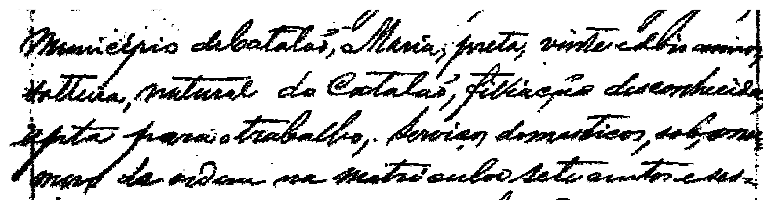 Municipio de Catalão, Maria, preta, vinte e dois annos,
solteira, natural do Catalão, filiação desconhecida,
apta para o trabalho, serviços domesticos, sob o nu-
mero de ordem na matricula sete centos e ses-